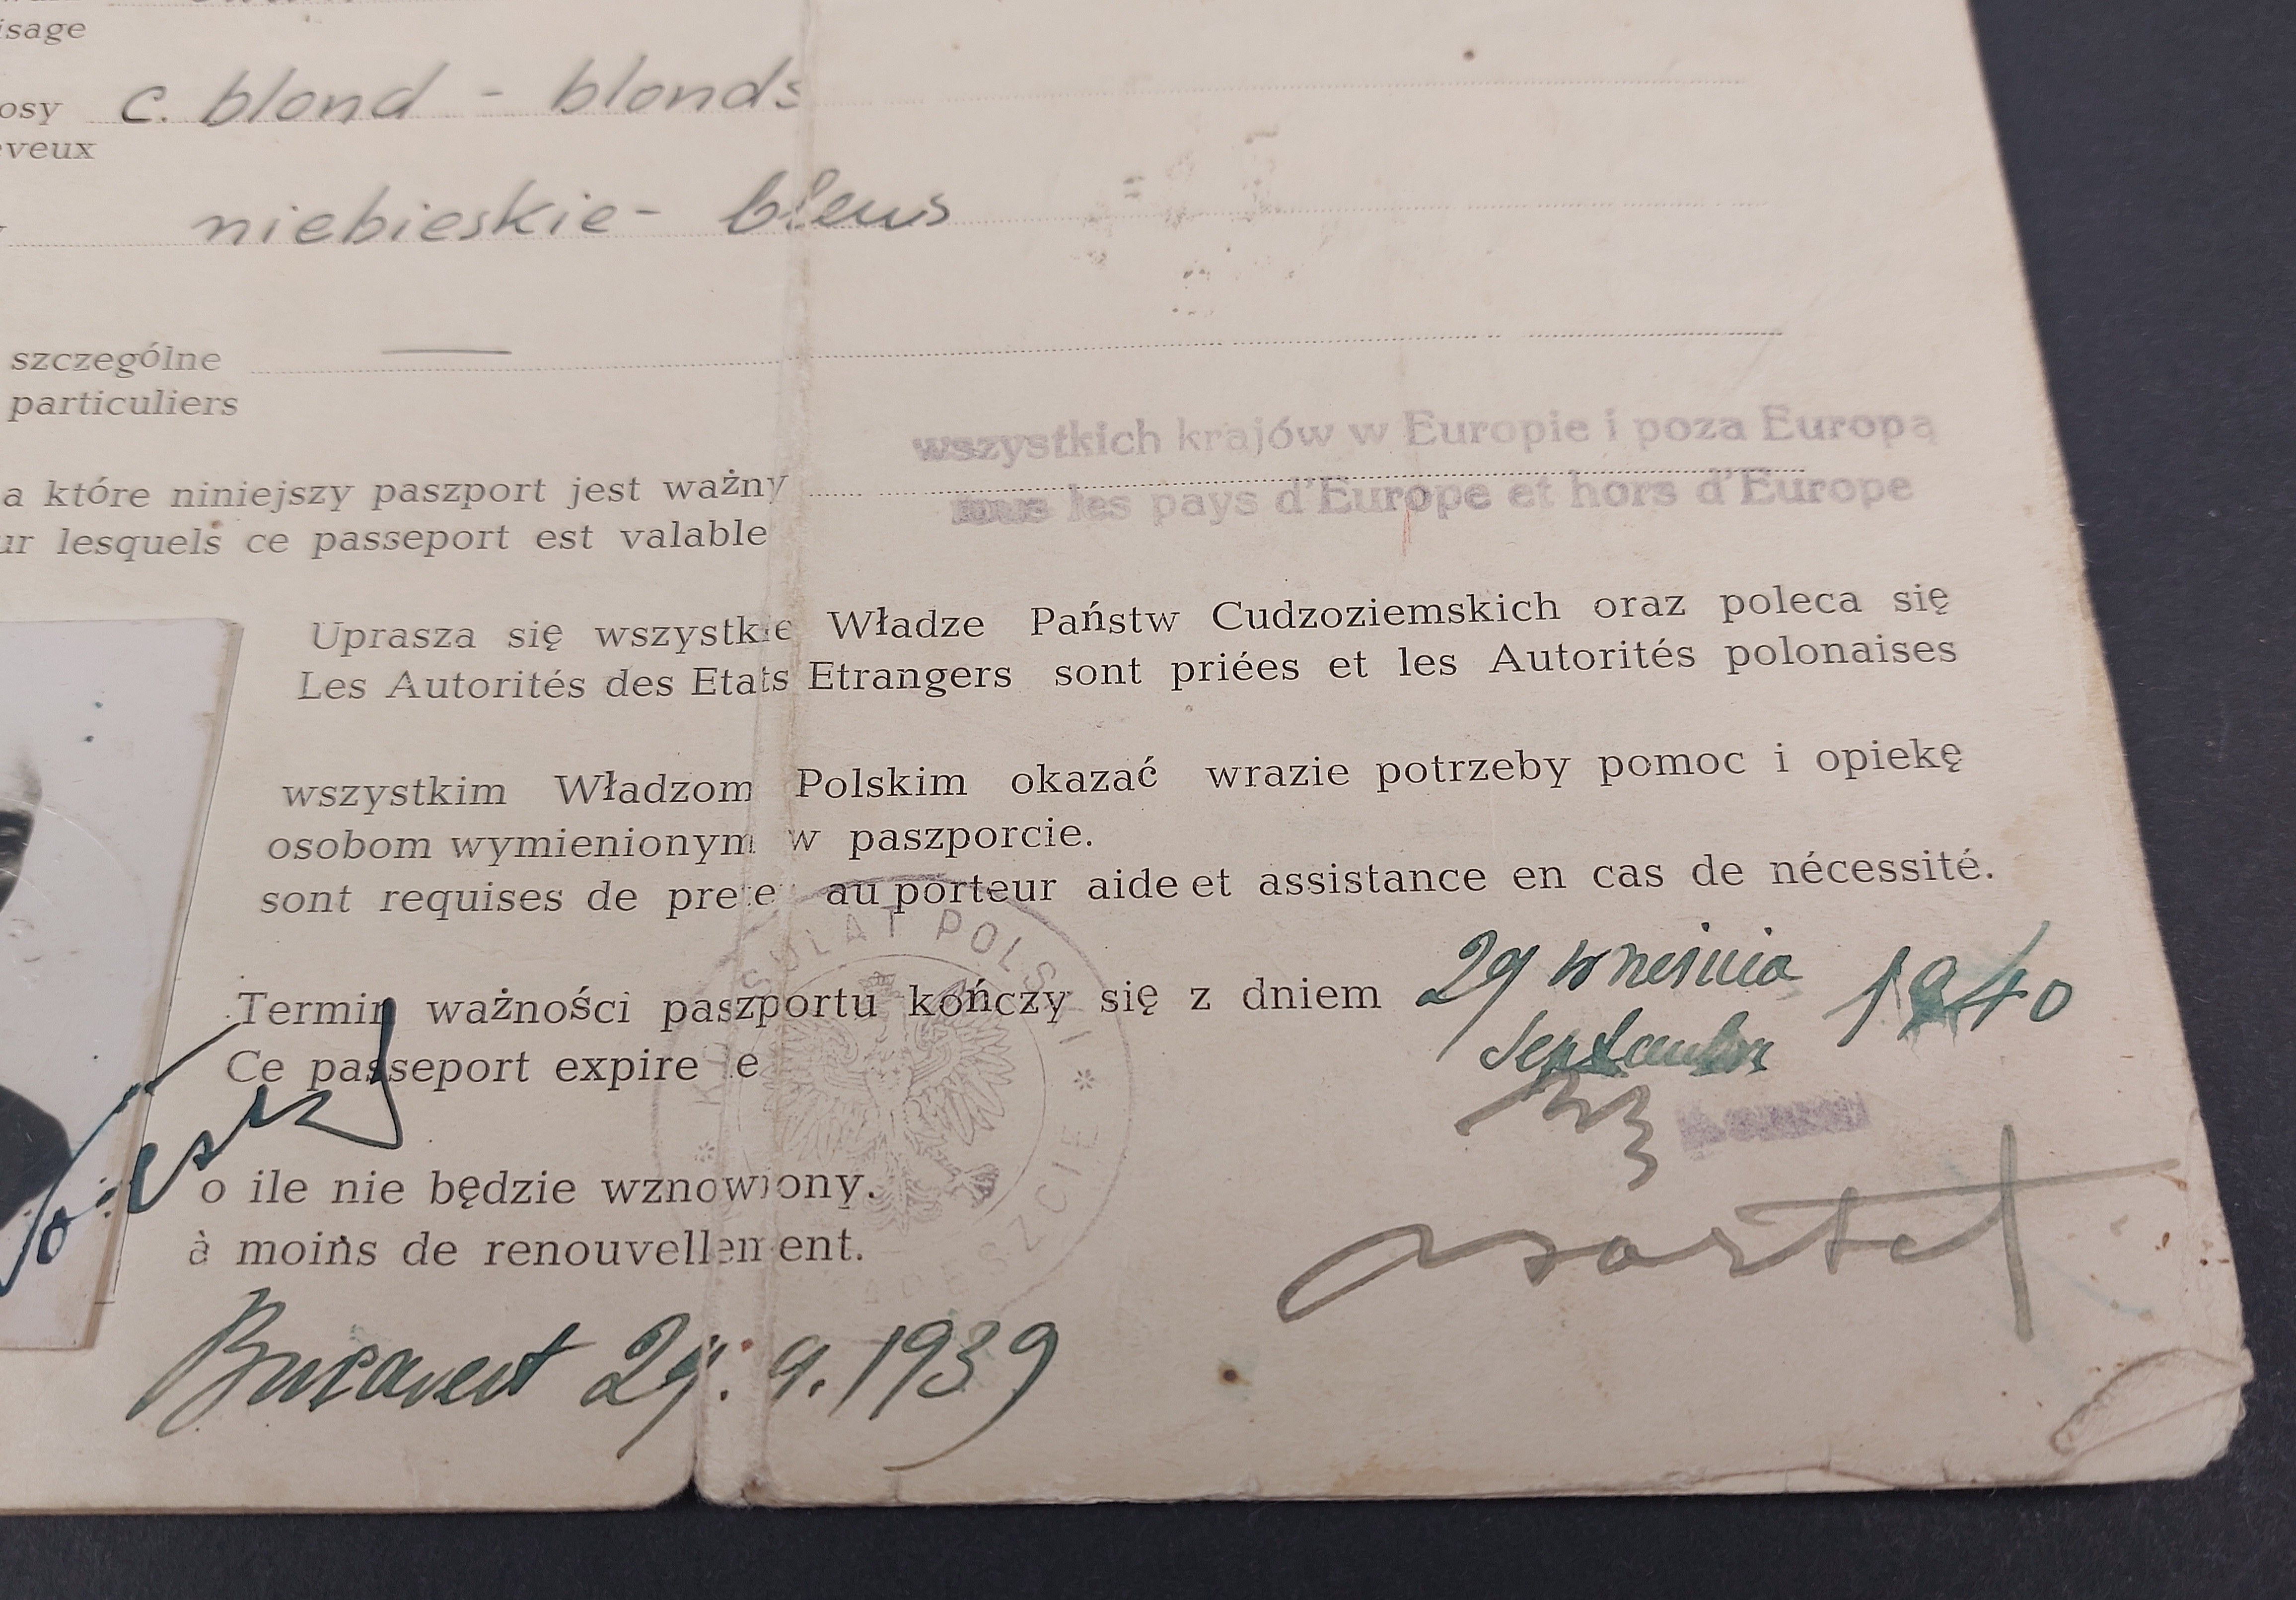 isage
osy c. blond - blonds
eveux
niebieskie - bleus
szczególne —
particuliers
wszystkich krajów w Europie i poza Europą
a które niniejszy paszport jest ważny
tous les pays d'Europe et hors d'Europe
ur lesquels ce passeport est valable
Uprasza się wszystkie Władze Państw Cudzoziemskich oraz poleca się
Les Autorités des Etats Etrangers sont priées et les Autorités polonaises
wszystkim Władzom Polskim okazać wrazie potrzeby pomoc i opiekę
osobom wymienionym w paszporcie.
sont requises de preter au porteur aide et assistance en cas de nécessité.
KONSULAT POLSKI
Termin ważności paszportu kończy się z dniem 29 września 1940
Ce passeport expire le septembre
o ile nie będzie wznowiony.
à moins de renouvellement.
Bucarest 29. 9. 1939